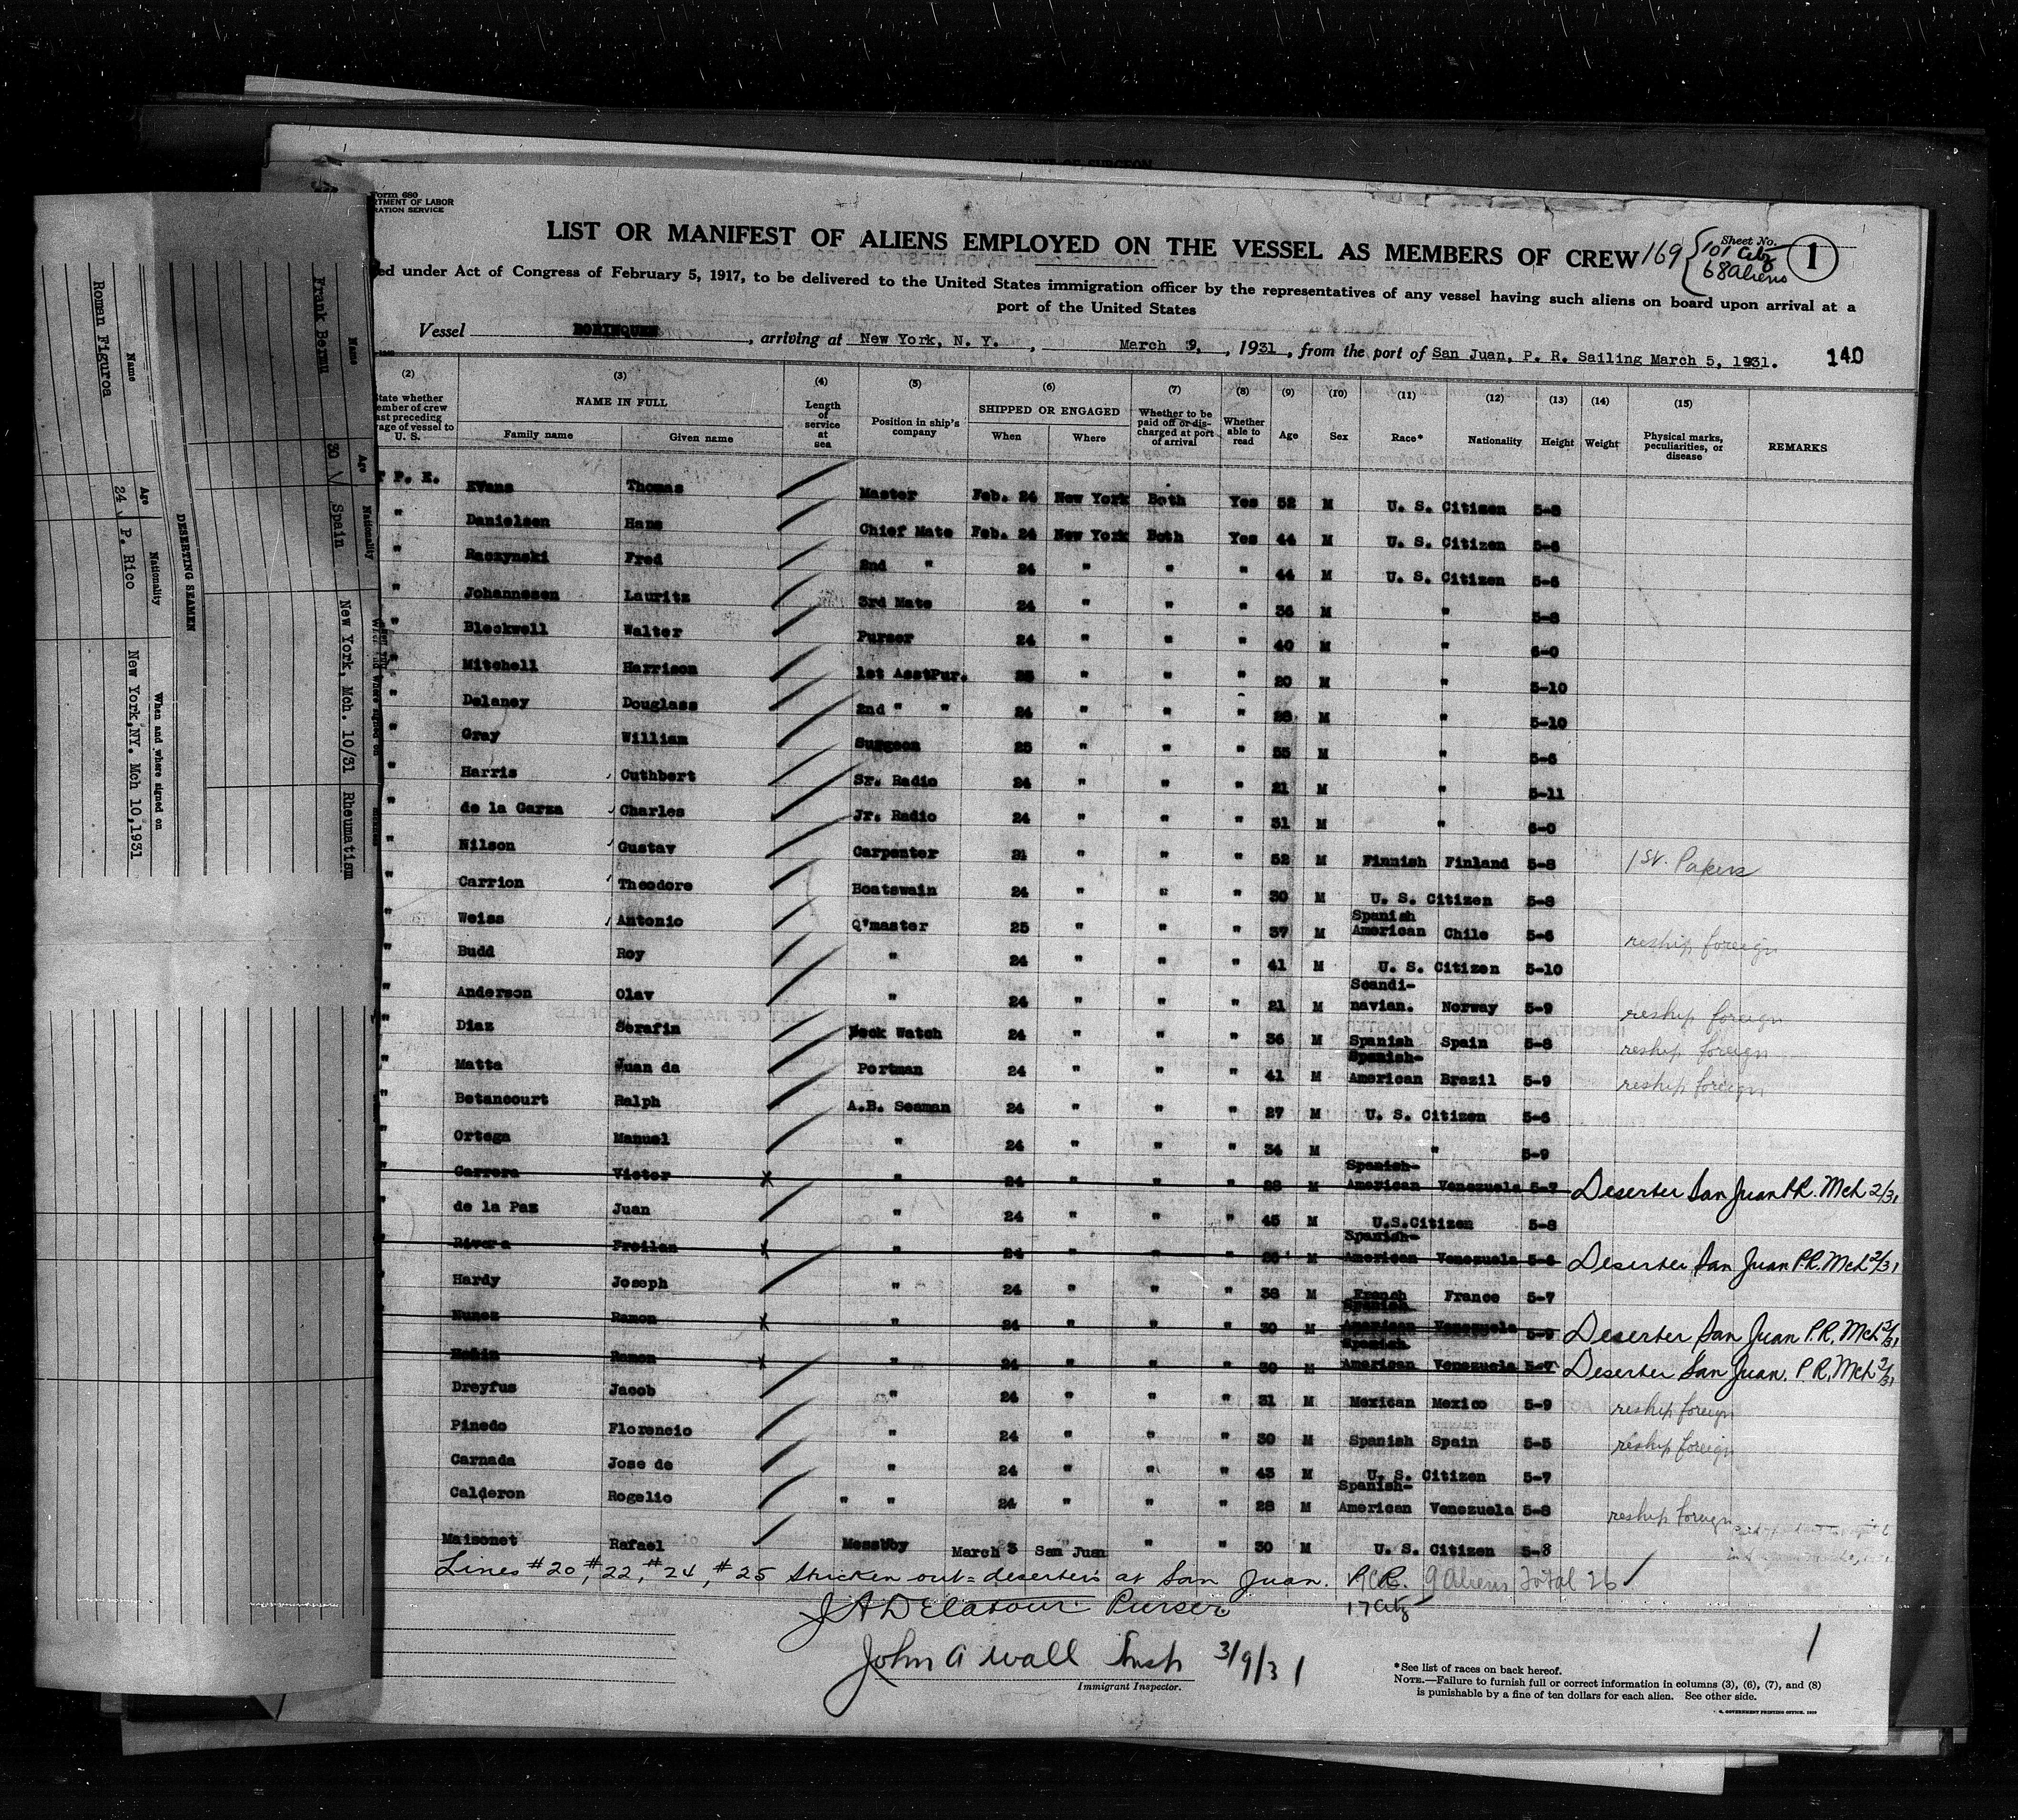 Form 680
RTMENT OF LABOR
RATION SERVICE
LIST OR MANIFEST OF ALIENS EMPLOYED ON THE VESSEL AS MEMBERS OF CREW
169 { 101 Citz 68 aliens
Sheet No. 1
ed under Act of Congress of February 5, 1917, to be delivered to the United States immigration officer by the representatives of any vessel having such aliens on board upon arrival at a
port of the United States
Vessel BORINQUEN, arriving at New York, N. Y., March 9, 1931, from the port of San Juan, P. R. Sailing March 5, 1931.
140
(2) (3) (4) (5) (6) (7) (8) (9) (10) (11) (12) (13) (14) (15)
State whether member of crew last preceding voyage of vessel to U. S.
NAME IN FULL
Family name Given name
Length of service at sea
Position in ship's company
SHIPPED OR ENGAGED
When Where
Whether to be paid off or discharged at port of arrival
Whether able to read
Age Sex Race* Nationality Height Weight
Physical marks, peculiarities, or disease
REMARKS
P. E. Evans Thomas Master Feb. 24 New York Both Yes 52 M U. S. Citizen 5-8
" Danielsen Hans Chief Mate Feb. 24 New York Both Yes 44 M U. S. Citizen 5-6
" Raczynski Fred 2nd " 24 " " " 44 M U. S. Citizen 5-6
" Johannesen Lauritz 3rd Mate 24 " " " 36 M " 5-8
" Bleckwell Walter Purser 24 " " " 40 M " 6-0
" Mitchell Harrison 1st AsstPur. " " " 20 M " 5-10
" Delaney Douglass 2nd " " 24 " " " 28 M " 5-10
" Gray William Surgeon 25 " " " 55 M " 5-6
" Harris Cuthbert Sr. Radio 24 " " " 21 M " 5-11
" de la Garza Charles Jr. Radio 24 " " " 31 M " 6-0
" Nilson Gustav Carpenter 21 " " " 52 M Finnish Finland 5-8 1st. Papers
" Carrion Theodore Boatswain 24 " " " 30 M U. S. Citizen 5-8
" Weiss Antonio Q'master 25 " " " 37 M Spanish American Chile 5-6 reship foreign
" Budd Roy " 24 " " " 41 M U. S. Citizen 5-10
" Anderson Olav " 24 " " " 21 M Scandi-navian. Norway 5-9 reship foreign
" Diaz Serafin Deck Watch 24 " " " 36 M Spanish Spain 5-8 reship foreign
" Matta Juan da Portman 24 " " " 41 M Spanish-American Brazil 5-9 reship foreign
" Betancourt Ralph A.B. Seaman 24 " " " 27 M U. S. Citizen 5-6
" Ortega Manuel " 24 " " " 34 M " 5-9
" Carrera Victor X " 24 " " " 28 M Spanish-American Venezuela 5-7 Deserter San Juan P.R. Mch 2/31
" de la Paz Juan " 24 " " " 45 M U.S.Citizen 5-8
" Rivera Froilan X " 24 " " " M Spanish-American Venezuela 5-6 Deserter San Juan P.R. Mch 2/31
" Hardy Joseph " 24 " " " 38 M French France 5-7
" Nunez Ramon X " 24 " " " 30 M Spanish American Venezuela 5-9 Deserter San Juan P.R. Mch 2/31
" Ramon X " 24 " " " 30 M Spanish American Venezuela 5-7 Deserter San Juan. P.R. Mch 2/31
Dreyfus Jacob " 24 " " " 31 M Mexican Mexico 5-9 reship foreign
Pinedo Florencio " 24 " " " 30 M Spanish Spain 5-5 reship foreign
Carnada Jose de " 24 " " " 43 M U. S. Citizen 5-7
Calderon Rogelio " " 24 " " " 28 M Spanish-American Venezuela 5-8 reship foreign
Maisonet Rafael Messboy March 3 San Juan " " 30 M U. S. Citizen 5-8
Lines #20, #22, #24, #25 stricken out = deserters at San Juan. P.R. 9 Aliens Total 26
17 Citz
J A Delatour Purser
John A Wall Insp 3/9/31
Immigrant Inspector.
1
*See list of races on back hereof.
NOTE.—Failure to furnish full or correct information in columns (3), (6), (7), and (8)
is punishable by a fine of ten dollars for each alien. See other side.
GOVERNMENT PRINTING OFFICE
Name Age Nationality
Frank Bermu 30 Spain New York, Mch. 10/31 Rheumatism
DESERTING SEAMEN
Name Age Nationality When and where signed on
Roman Figuroa 24 P. Rico New York,NY. Mch 10,1931